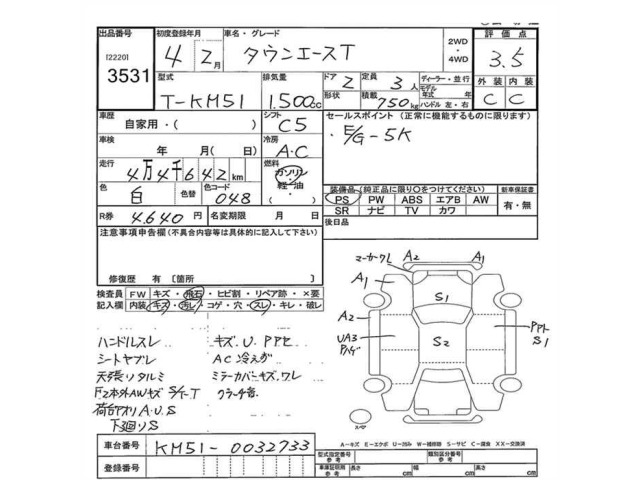 出品番号 初度登録年月 車名・グレード 評価点
[2220] 3531 4年 2月 タウンエースT 2WD・4WD 3.5
型式 排気量 ドア 2 定員 3人 ディーラー・並行 外装 内装
T-KM51 1.500cc 形状 積載 750kg モデル年式 年 ハンドル 左・右 C C
車歴 自家用・( ) シフト C5 セールスポイント (正常に機能するものに限ります)
車検 年 月( 日) 冷房 A・C ・E/G-5K
走行 4万4千642km 燃料 ガソリン・軽油・
色 白 色替 色コード 048 装備品(純正品に限り○をつけてください) 新車保証書
PS PW ABS エアB AW 有・無
R券 4.640円 名変期限 月 日 SR ナビ TV カワ
注意事項申告欄(不具合内容等は具体的に記入して下さい) 後日品
修復歴 有 〔箇所 〕
検査員 FW キズ・飛石・ヒビ割・リペア跡・×要
記入欄 内装 キズ・汚レ・コゲ・穴・スレ・キレ・破レ
ハンドルスレ キズ、U、PPセ
シートヤブレ AC冷えガ
天張リタルミ ミラーカバーキズ、ワレ
F2本外AWキズ S/T-T クラッチ音
荷台アオリA、U、S
下廻リS
マーカーワレ A2 A1
A1
S1
A2
UA3
S2
S1
スペア
A-キズ E-エクボ U-凹み W-補修跡 S-サビ C-腐食 XX-交換済
車台番号 KM51-0032733
型式指定番号 参考 類別区分番号 参考
登録番号
車庫証明用 参考 長さ cm 幅 cm 高さ cm